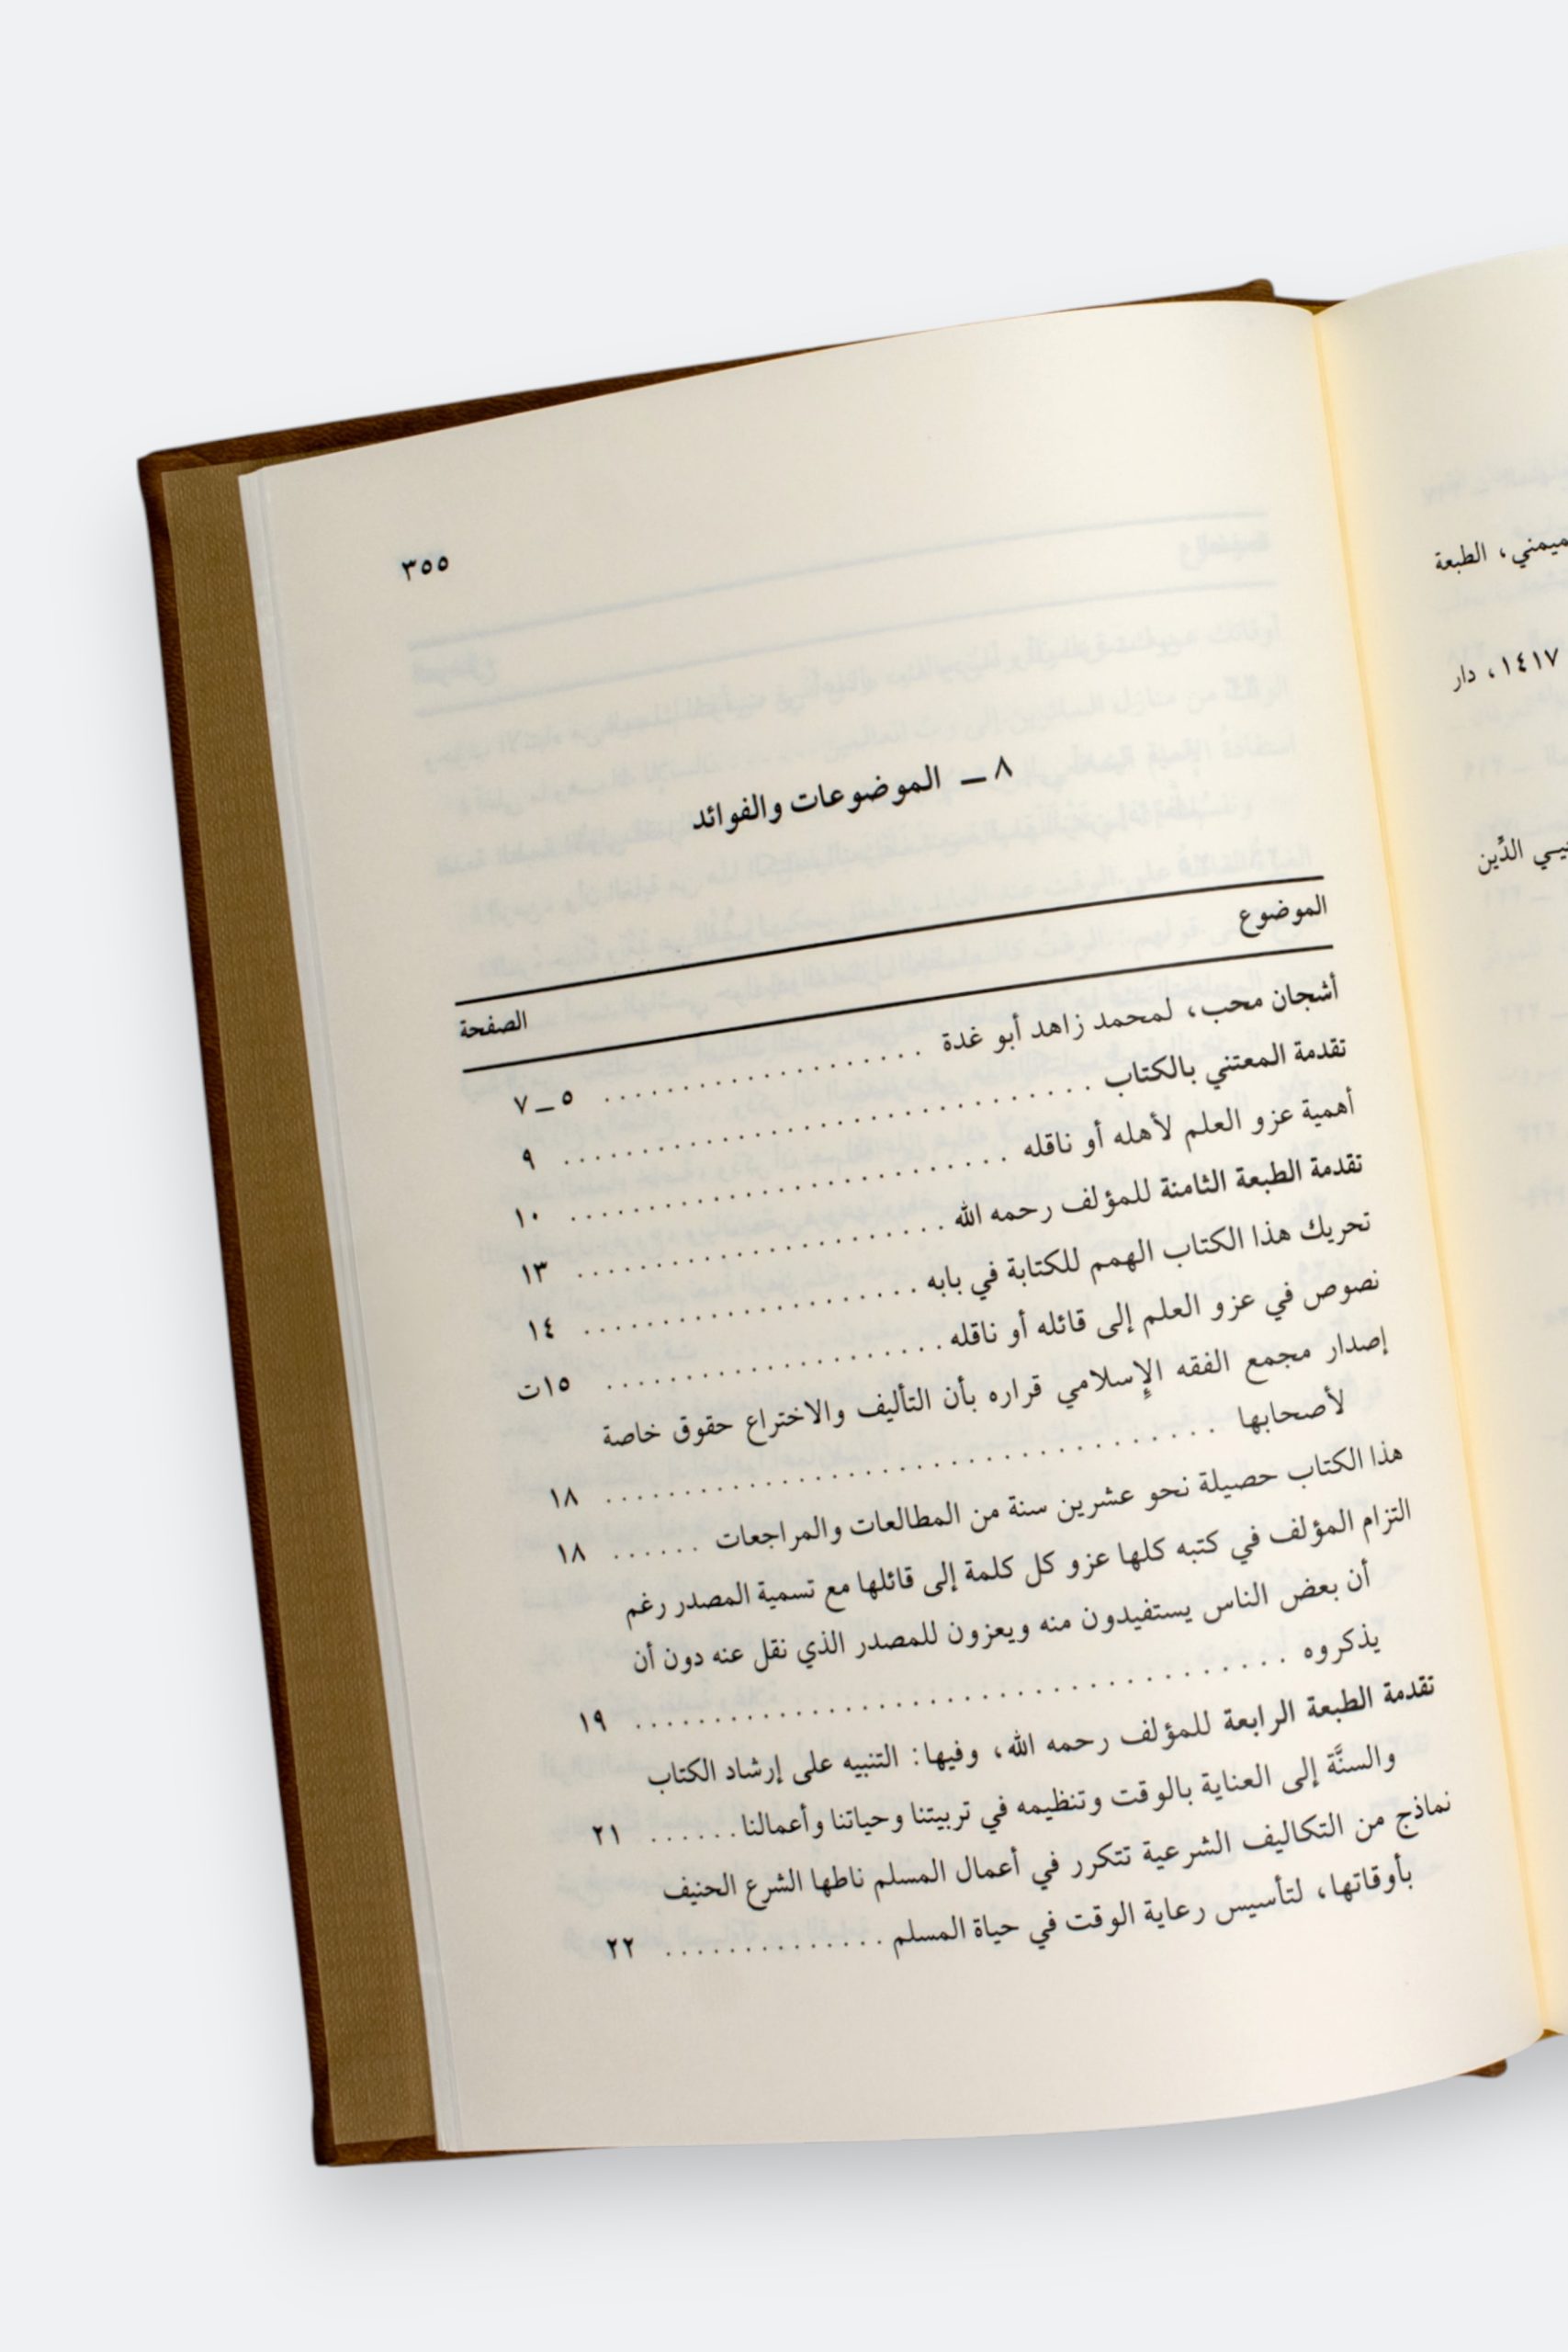 ٣٥٥
٨ ــ الموضوعات والفوائد
الموضوع
الصفحة
أشجان محب، لمحمد زاهد أبو غدة ................ ٥ــ٧
تقدمة المعتني بالكتاب ................ ٩
أهمية عزو العلم لأهله أو ناقله ................ ١٠
تقدمة الطبعة الثامنة للمؤلف رحمه الله ................ ١٣
تحريك هذا الكتاب الهمم للكتابة في بابه ................ ١٤
نصوص في عزو العلم إلى قائله أو ناقله ................ ١٥ت
إصدار مجمع الفقه الإسلامي قراره بأن التأليف والاختراع حقوق خاصة
لأصحابها ................ ١٨
هذا الكتاب حصيلة نحو عشرين سنة من المطالعات والمراجعات ...... ١٨
التزام المؤلف في كتبه كلها عزو كل كلمة إلى قائلها مع تسمية المصدر رغم
أن بعض الناس يستفيدون منه ويعزون للمصدر الذي نقل عنه دون أن
يذكروه ................ ١٩
تقدمة الطبعة الرابعة للمؤلف رحمه الله، وفيها: التنبيه على إرشاد الكتاب
والسنَّة إلى العناية بالوقت وتنظيمه في تربيتنا وحياتنا وأعمالنا ...... ٢١
نماذج من التكاليف الشرعية تتكرر في أعمال المسلم ناطها الشرع الحنيف
بأوقاتها، لتأسيس رعاية الوقت في حياة المسلم .............. ٢٢
الطبعة
١٤١٧، دار
الدِّين